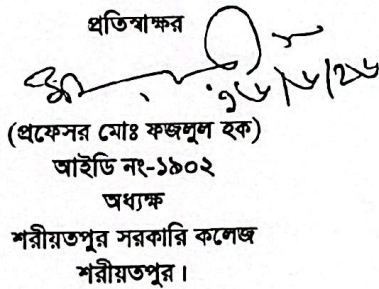 প্রতিস্বাক্ষর
(প্রফেসর মোঃ ফজলুল হক)
আইডি নং-১৯০২
অধ্যক্ষ
শরীয়তপুর সরকারি কলেজ
শরীয়তপুর।